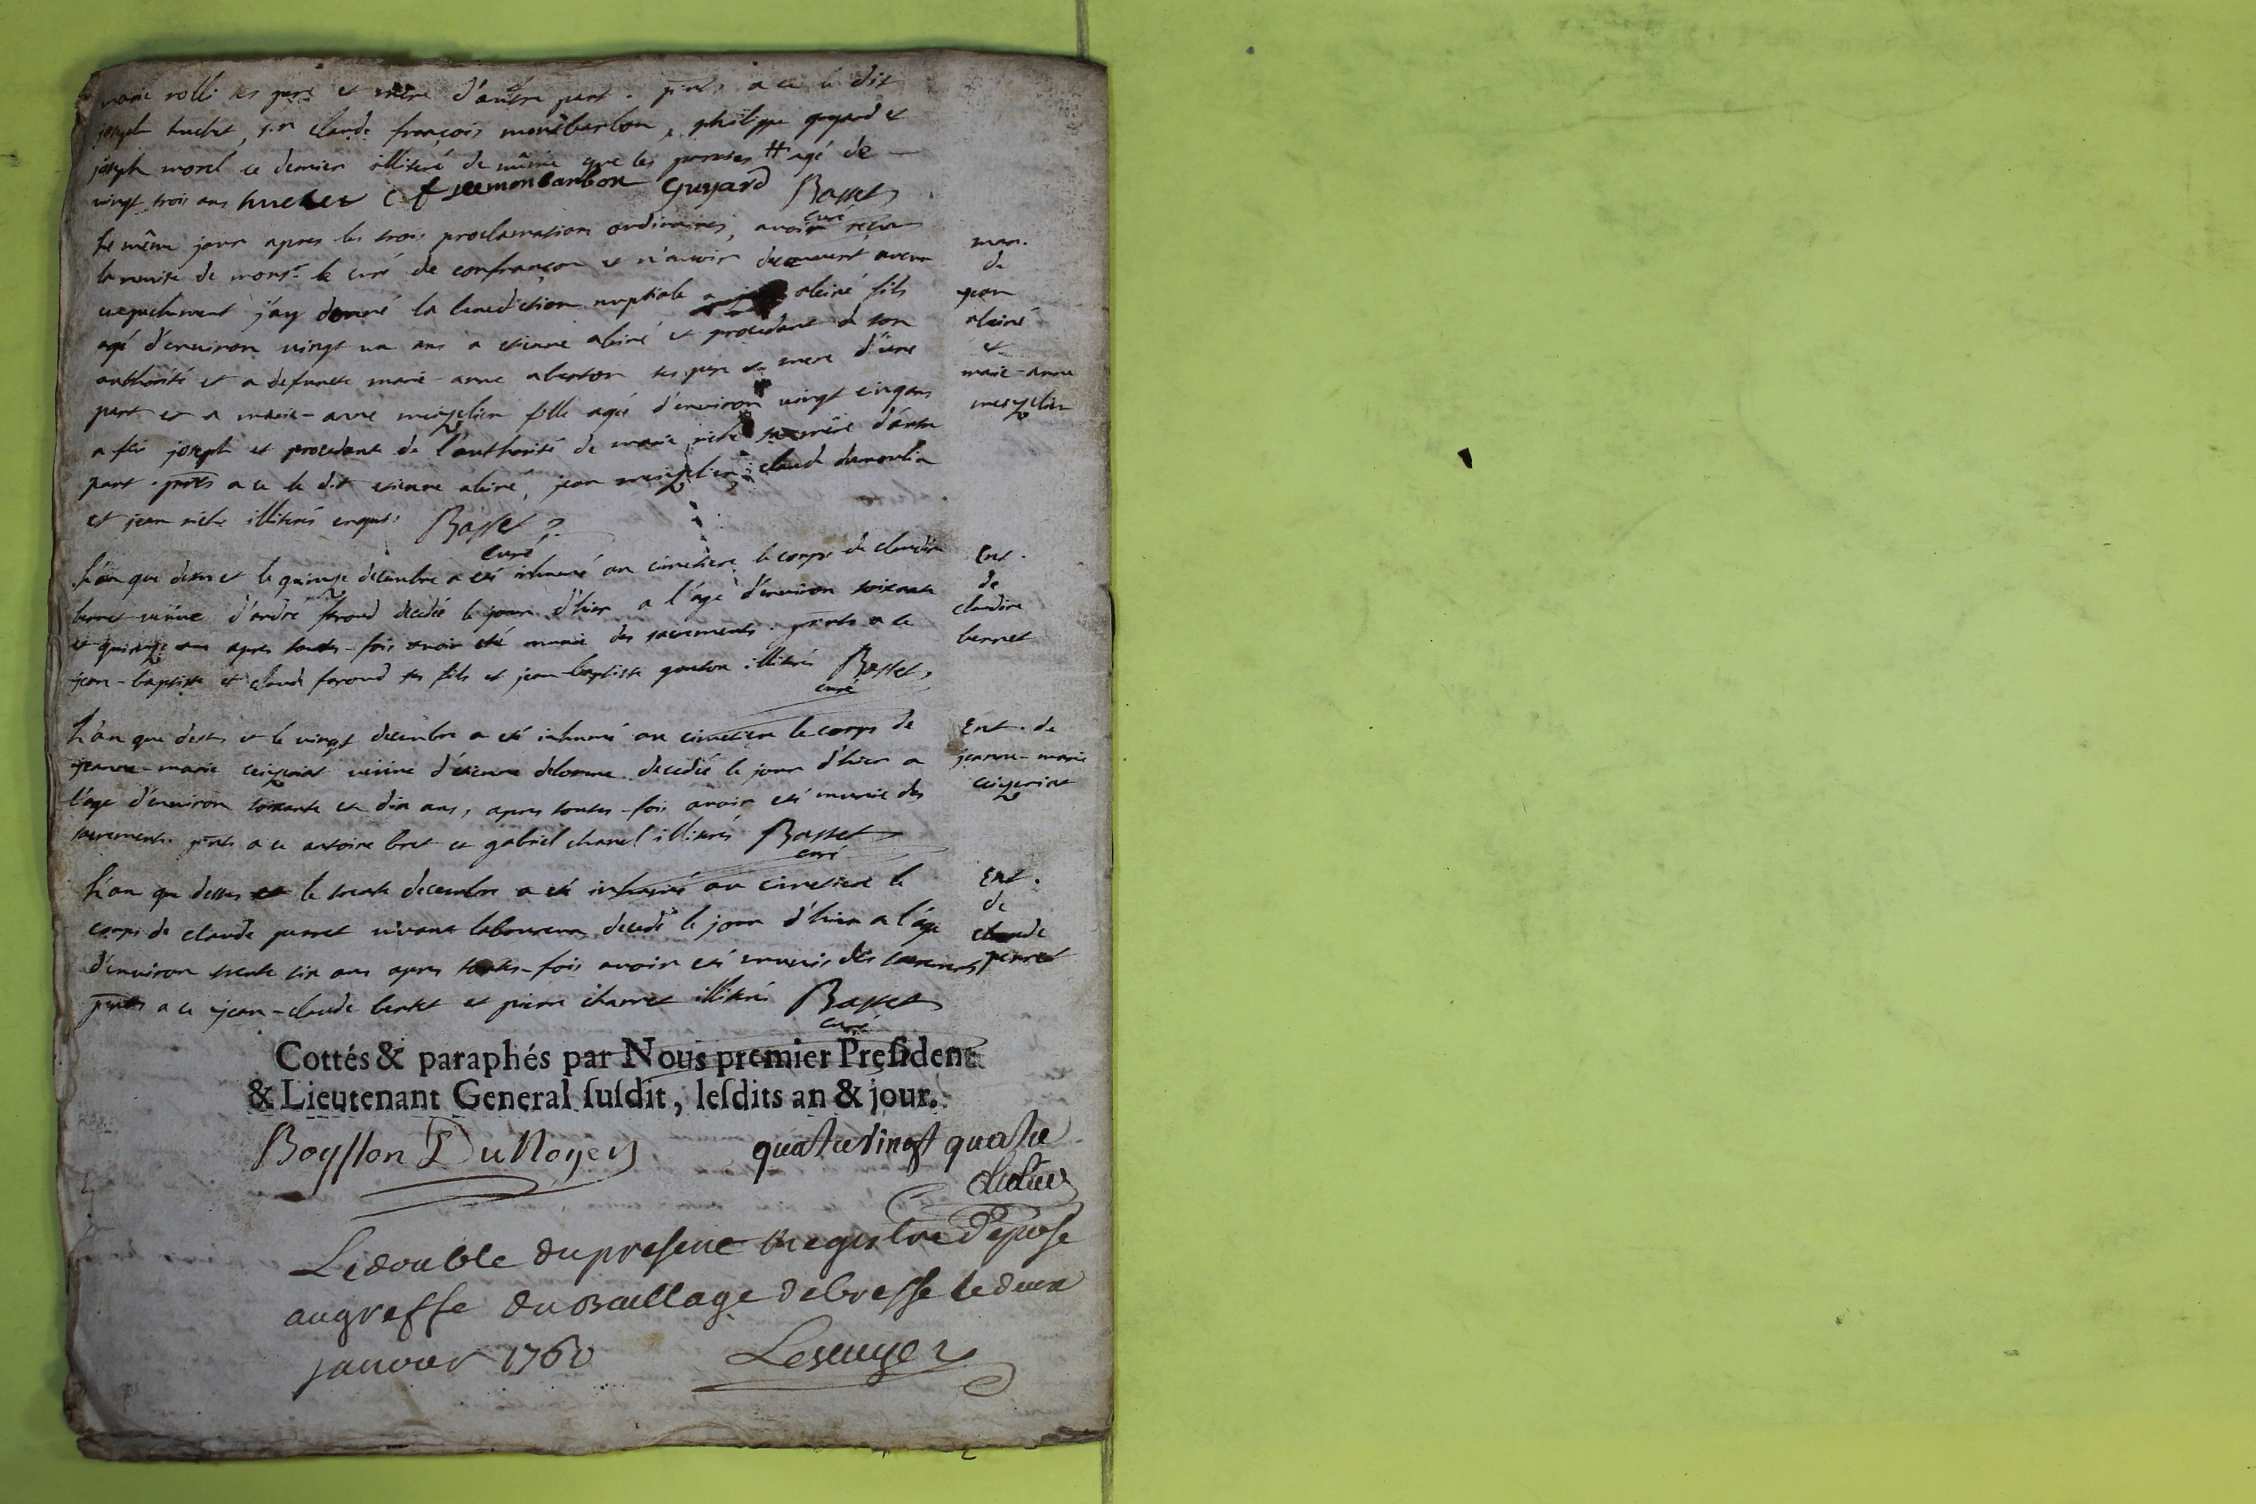 marie rolli ses pere et mere d'autre part. pnts a ce le dit
joseph huchet, sr claude françois monbarbon, philippe guyard et
joseph morel ce dernier illiteré de même que les parties # agé de
vingt trois ans huchet C f monbarbon Guyard Basset
curé
Le même jour apres les trois proclamations ordinaires, avoir reçu
la remise de monsr le curé de confrançon et n'avoir decouvert aucun
empechement j'ay donné la benediction nuptiale a abiné fils
agé d'environ vingt un ans a etienne abiné et procedant de son
authorité et a defuncte marie-anne ses pere et mere d'une
part et a marie-anne fille agée d'environ vingt cinq ans
a feu joseph et procedante de l'authorité de marie riche sa mere d'autre
part. pnts a ce le dit etienne abiné, jean claude dumoulin
et jean riche illiterés enquis Basset
curé
man.
de
jean
abiné
et
marie-anne
L'an que dessus et le quinze decembre a eté inhumé au cimetiere le corps de claudine
berret veuve d'andré feroud decedée le jour d'hier a l'age d'environ soixante
et quinze ans apres toutes-fois avoir eté munie des sacrements. pnts a ce
jean-baptiste et claude feroud ses fils et jean-baptiste illiterés Basset
curé
Ent.
de
claudine
berret
L'an que dessus et le vingt decembre a eté inhumé au cimetiere le corps de
jeanne-marie ceizeriat veuve d'etienne delorme decedée le jour d'hier a
l'age d'environ soixante et dix ans, apres toutes-fois avoir eté munie des
sacrements. pnts a ce antoine bret et gabriel chanel illiterés Basset
curé
Ent. de
jeanne-marie
ceizeriat
L'an que dessus et le trente decembre a eté inhumé au cimetiere le
corps de claude perret vivant laboureur decedé le jour d'hier a l'age
d'environ trente six ans apres toutes-fois avoir eté muni des sacrements
pnts a ce jean-claude berret et pierre charvet illiterés Basset
curé
Ent.
de
claude
perret
Cottés & paraphés par Nous premier Preſident
& Lieutenant General ſuſdit, leſdits an & jour.
Boysson DuNoyer quatrevingt quatre
Le double du present Registre Deposé
au greffe du Baillage de bresse le deux
janvier 1760